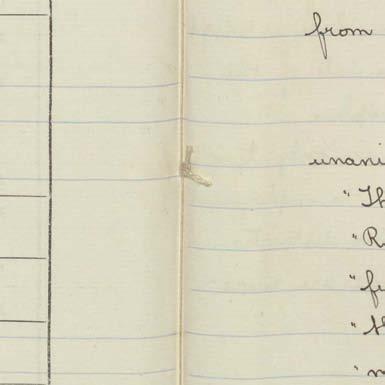 from
unani
"Th
"R
"fu
"th
"m